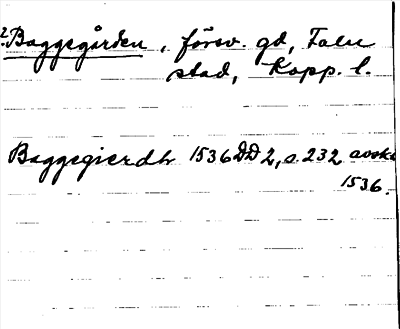 2. Baggegården, försv. gd, Falu
stad, Kopp. l.
Baggegierdh 1536 DD 2, s. 232 avskr
1536.